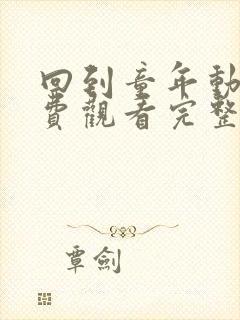 回到童年動
費觀看完整
覃劍